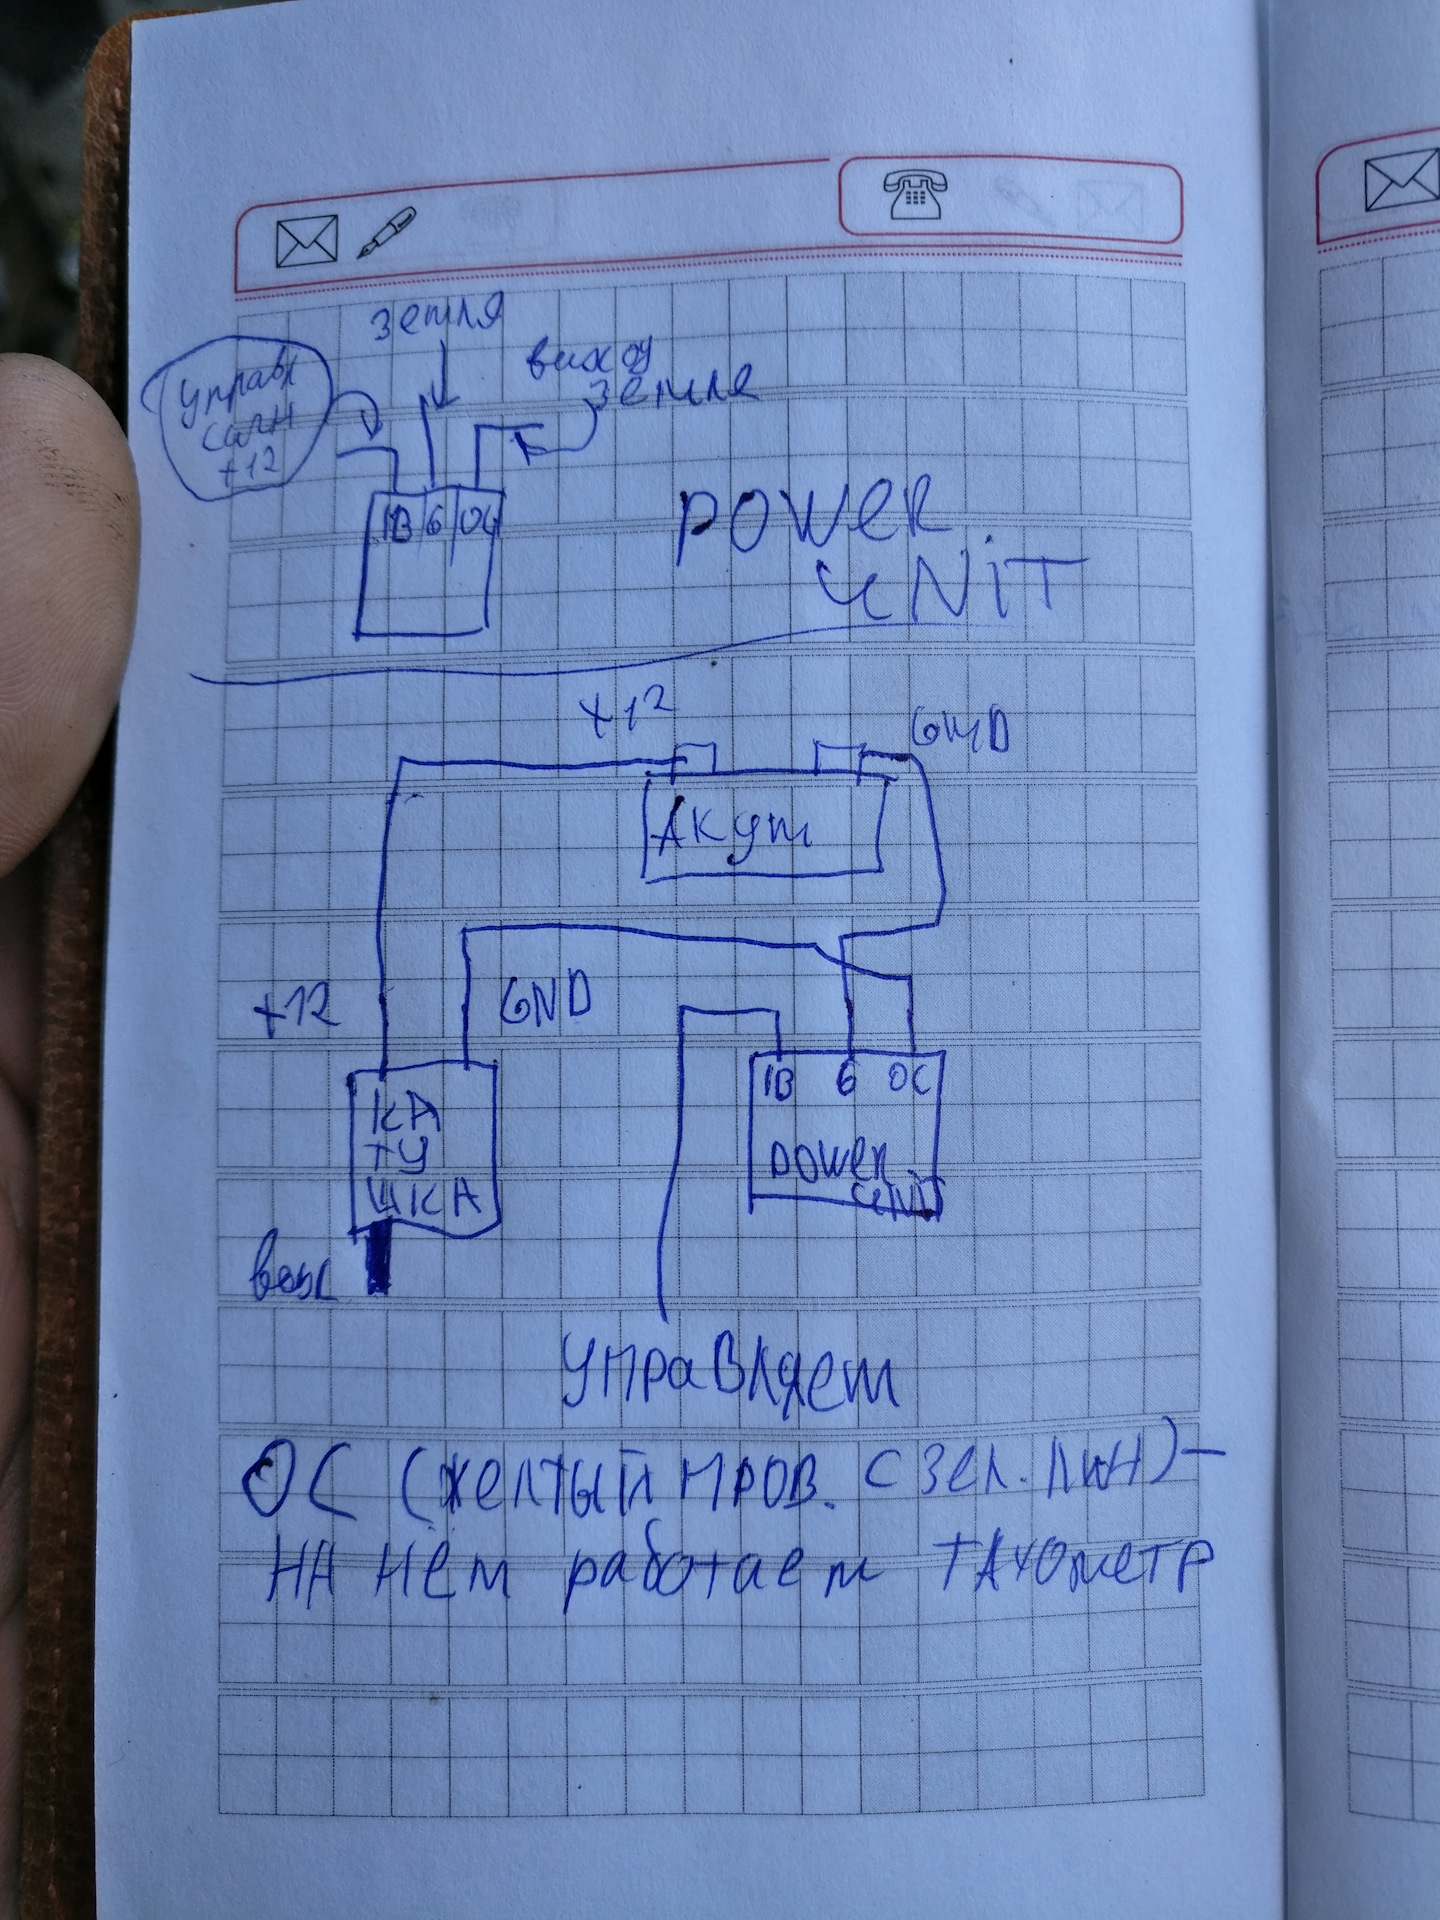 земля
выход
земля
управл
сигн
+12
1B G OC
POWER
UNIT
+12
GND
Акум
+12
GND
КА
ТУ
ШКА
1B G OC
POWER
UNIT
управляем
ОС (желтый пров. с зел. лин) -
на нём работаем тахометр